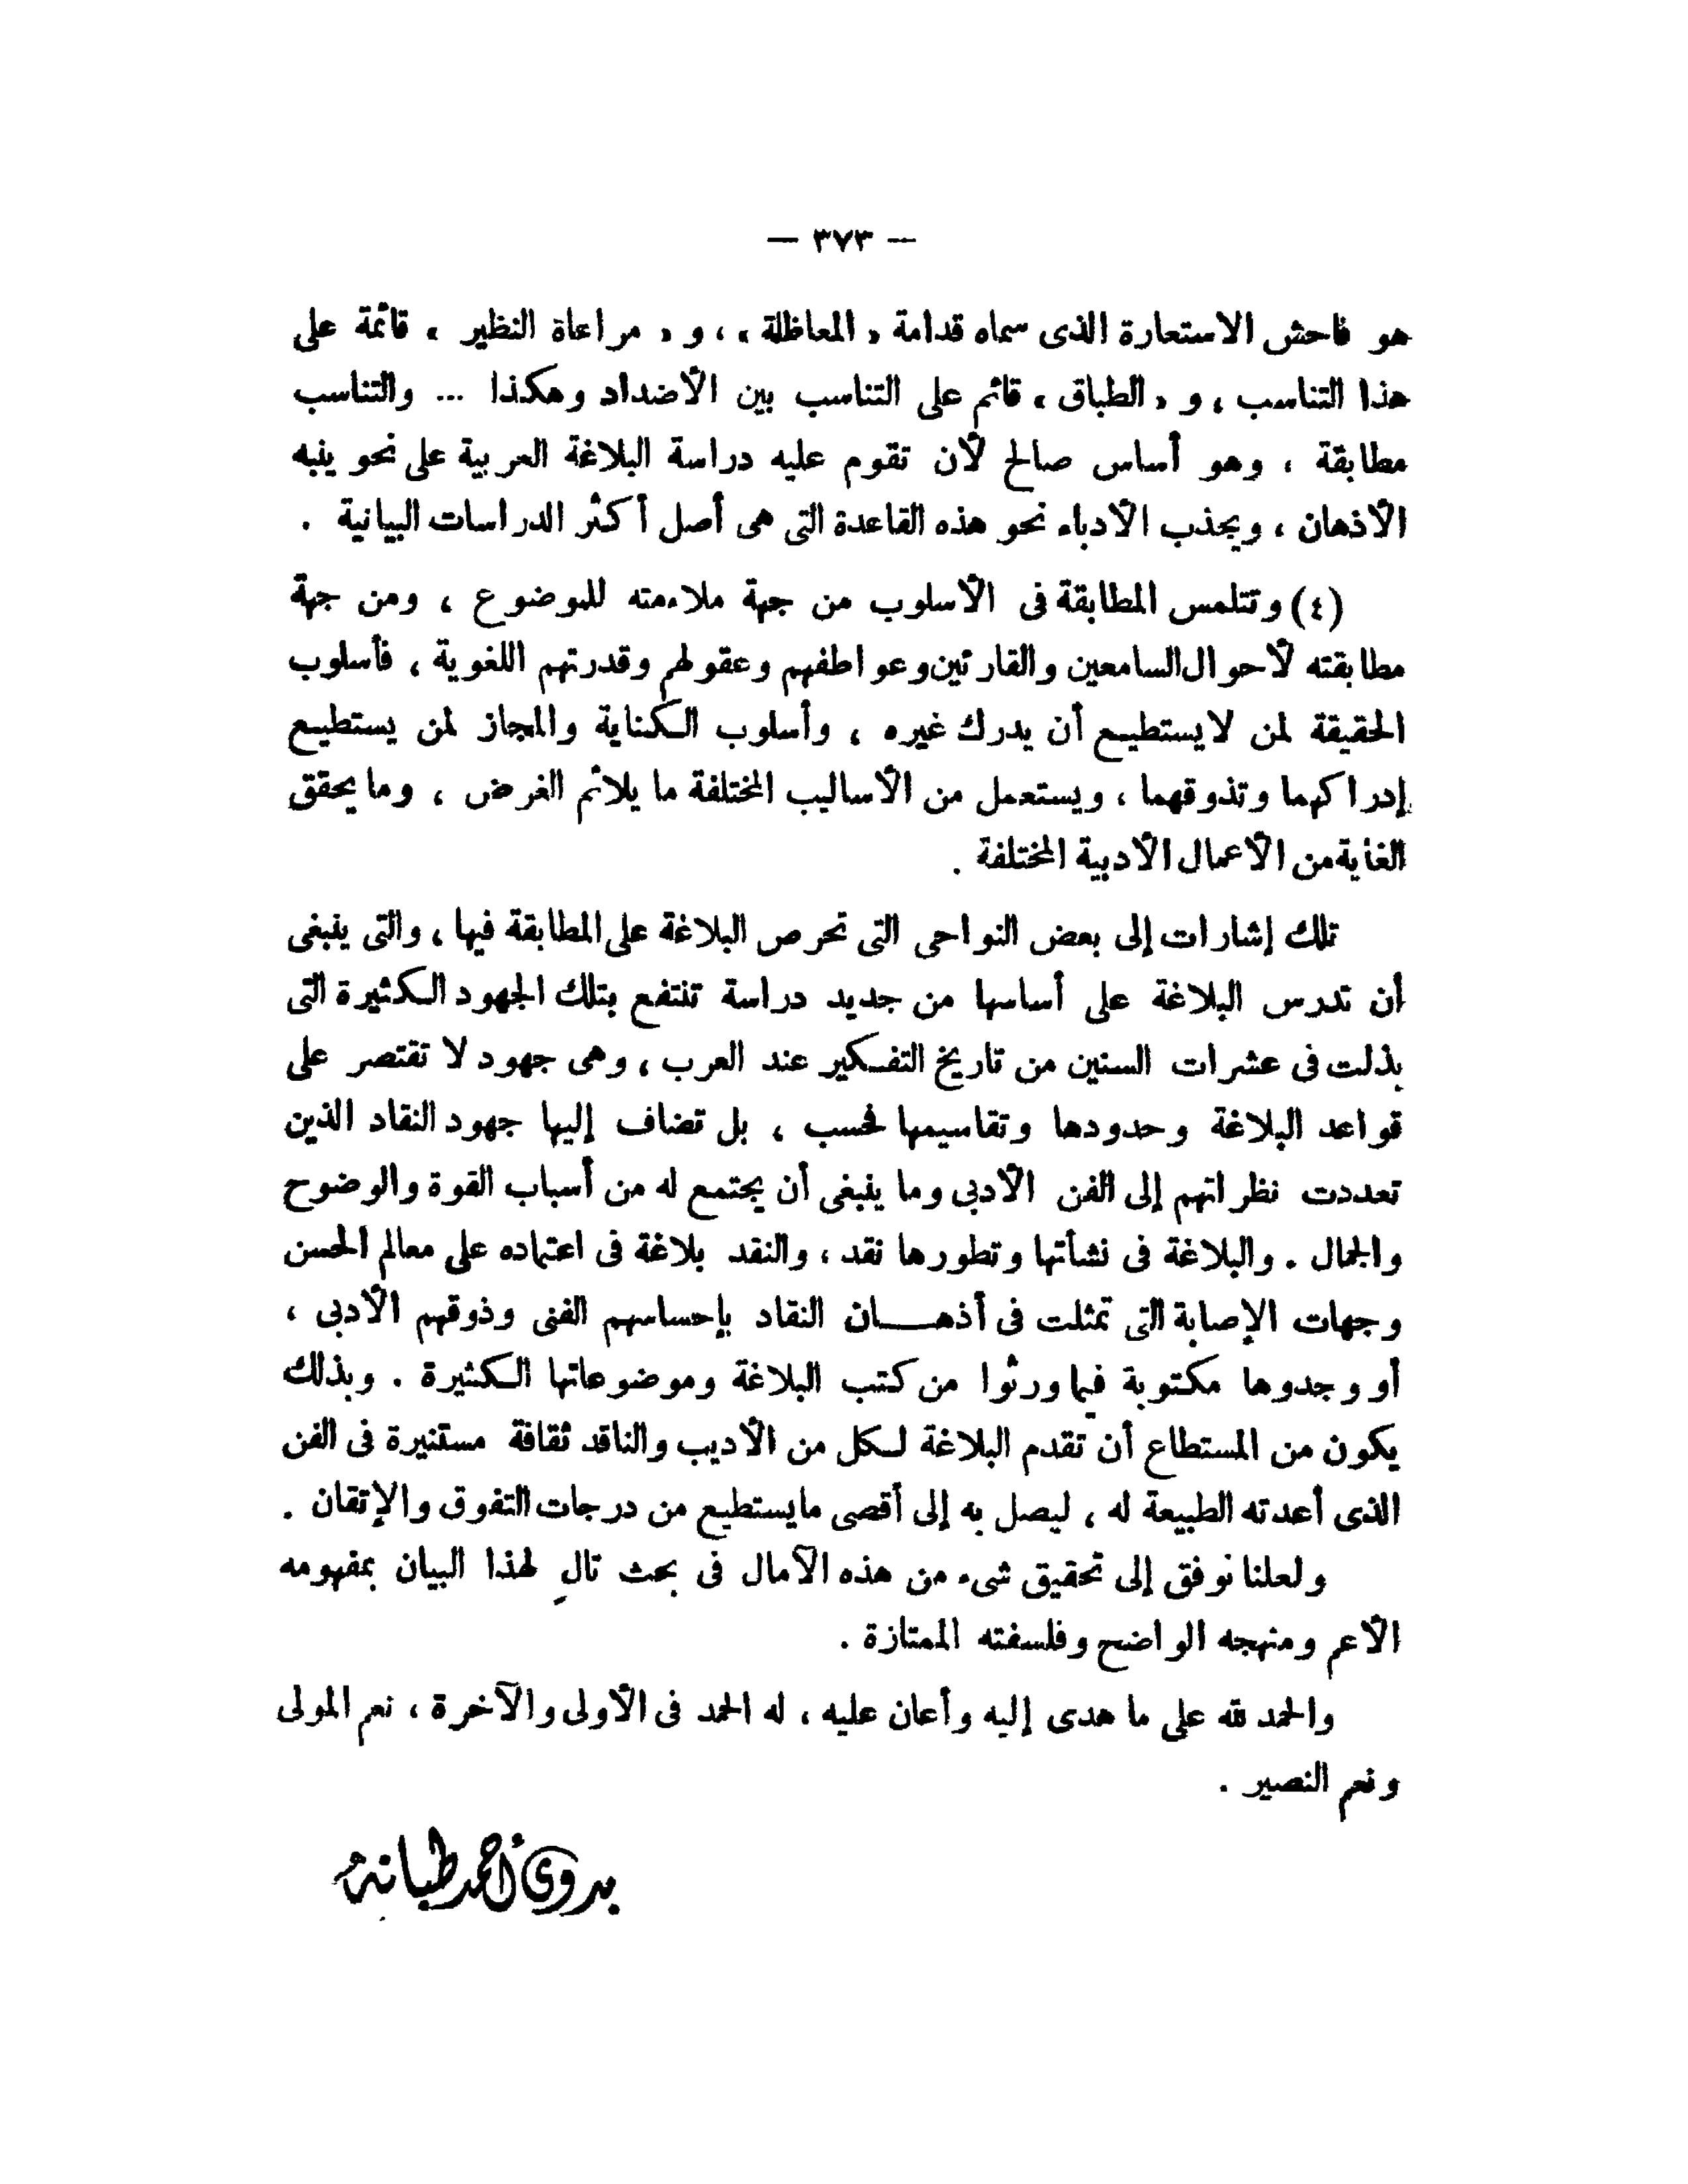 — ٣٧٣ —
هو فاحش الاستعارة الذى سماه قدامة « المعاظلة » ، و « مراعاة النظير » قائمة على
هذا التناسب ، و « الطباق » قائم على التناسب بين الأضداد وهكذا ... والتناسب
مطابقة ، وهو أساس صالح لأن تقوم عليه دراسة البلاغة العربية على نحو ينبه
الأذهان ، ويجذب الأدباء نحو هذه القاعدة التى هى أصل أكثر الدراسات البيانية .
(٤) وتتلمس المطابقة فى الأسلوب من جهة ملاءمته للموضوع ، ومن جهة
مطابقته لأحوال السامعين والقارئين وعواطفهم وعقولهم وقدرتهم اللغوية ، فأسلوب
الحقيقة لمن لا يستطيع أن يدرك غيره ، وأسلوب الكناية والمجاز لمن يستطيع
إدراكهما وتذوقهما ، ويستعمل من الأساليب المختلفة ما يلائم الغرض ، وما يحقق
الغاية من الأعمال الأدبية المختلفة .
تلك إشارات إلى بعض النواحى التى تحرص البلاغة على المطابقة فيها ، والتى ينبغى
أن تدرس البلاغة على أساسها من جديد دراسة تنتفع بتلك الجهود الكثيرة التى
بذلت فى عشرات السنين من تاريخ التفكير عند العرب ، وهى جهود لا تقتصر على
قواعد البلاغة وحدودها وتقاسيمها فحسب ، بل تضاف إليها جهود النقاد الذين
تعددت نظراتهم إلى الفن الأدبى وما ينبغى أن يجتمع له من أسباب القوة والوضوح
والجمال . والبلاغة فى نشأتها وتطورها نقد ، والنقد بلاغة فى اعتماده على معالم الحسن
وجهات الإصابة التى تمثلت فى أذهـــان النقاد بإحساسهم الفنى وذوقهم الأدبى ،
أو وجدوها مكتوبة فيما ورثوا من كتب البلاغة وموضوعاتها الكثيرة . وبذلك
يكون من المستطاع أن تقدم البلاغة لكل من الأديب والناقد ثقافة مستنيرة فى الفن
الذى أعدته الطبيعة له ، ليصل به إلى أقصى ما يستطيع من درجات التفوق والإتقان .
ولعلنا نوفق إلى تحقيق شىء من هذه الآمال فى بحث تالٍ لهذا البيان بمفهومه
الأعم ومنهجه الواضح وفلسفته الممتازة .
والحمد لله على ما هدى إليه وأعان عليه ، له الحمد فى الأولى والآخرة ، نعم المولى
ونعم النصير .
بدوى أحمد طبانه